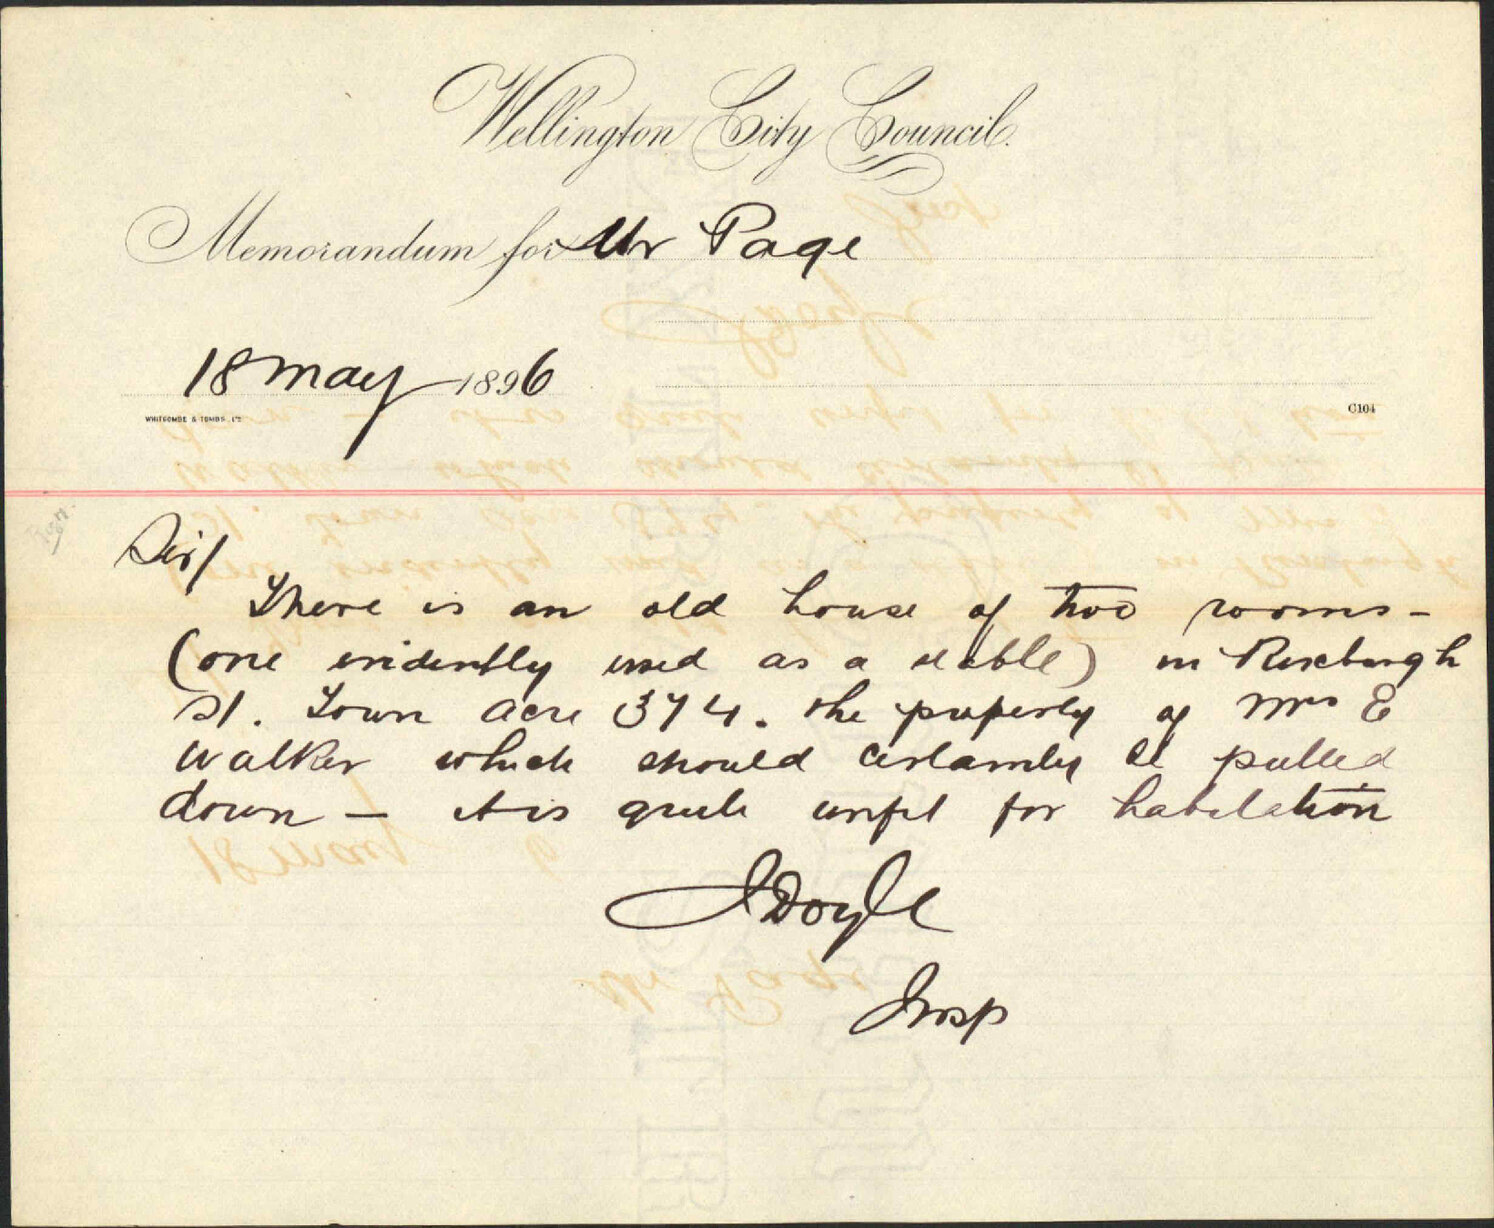 Wellington City Council.
Memorandum for Mr Page
18 May 1896
WHITCOMBE & TOMBS, LTD
C104
Sir/
There is an old house of two rooms -
(one evidently used as a stable) in Roxburgh
St. Town Acre 374. the property of Mrs E
Walker which should certainly be pulled
down - it is quite unfit for habitation
J Doyle
Insp